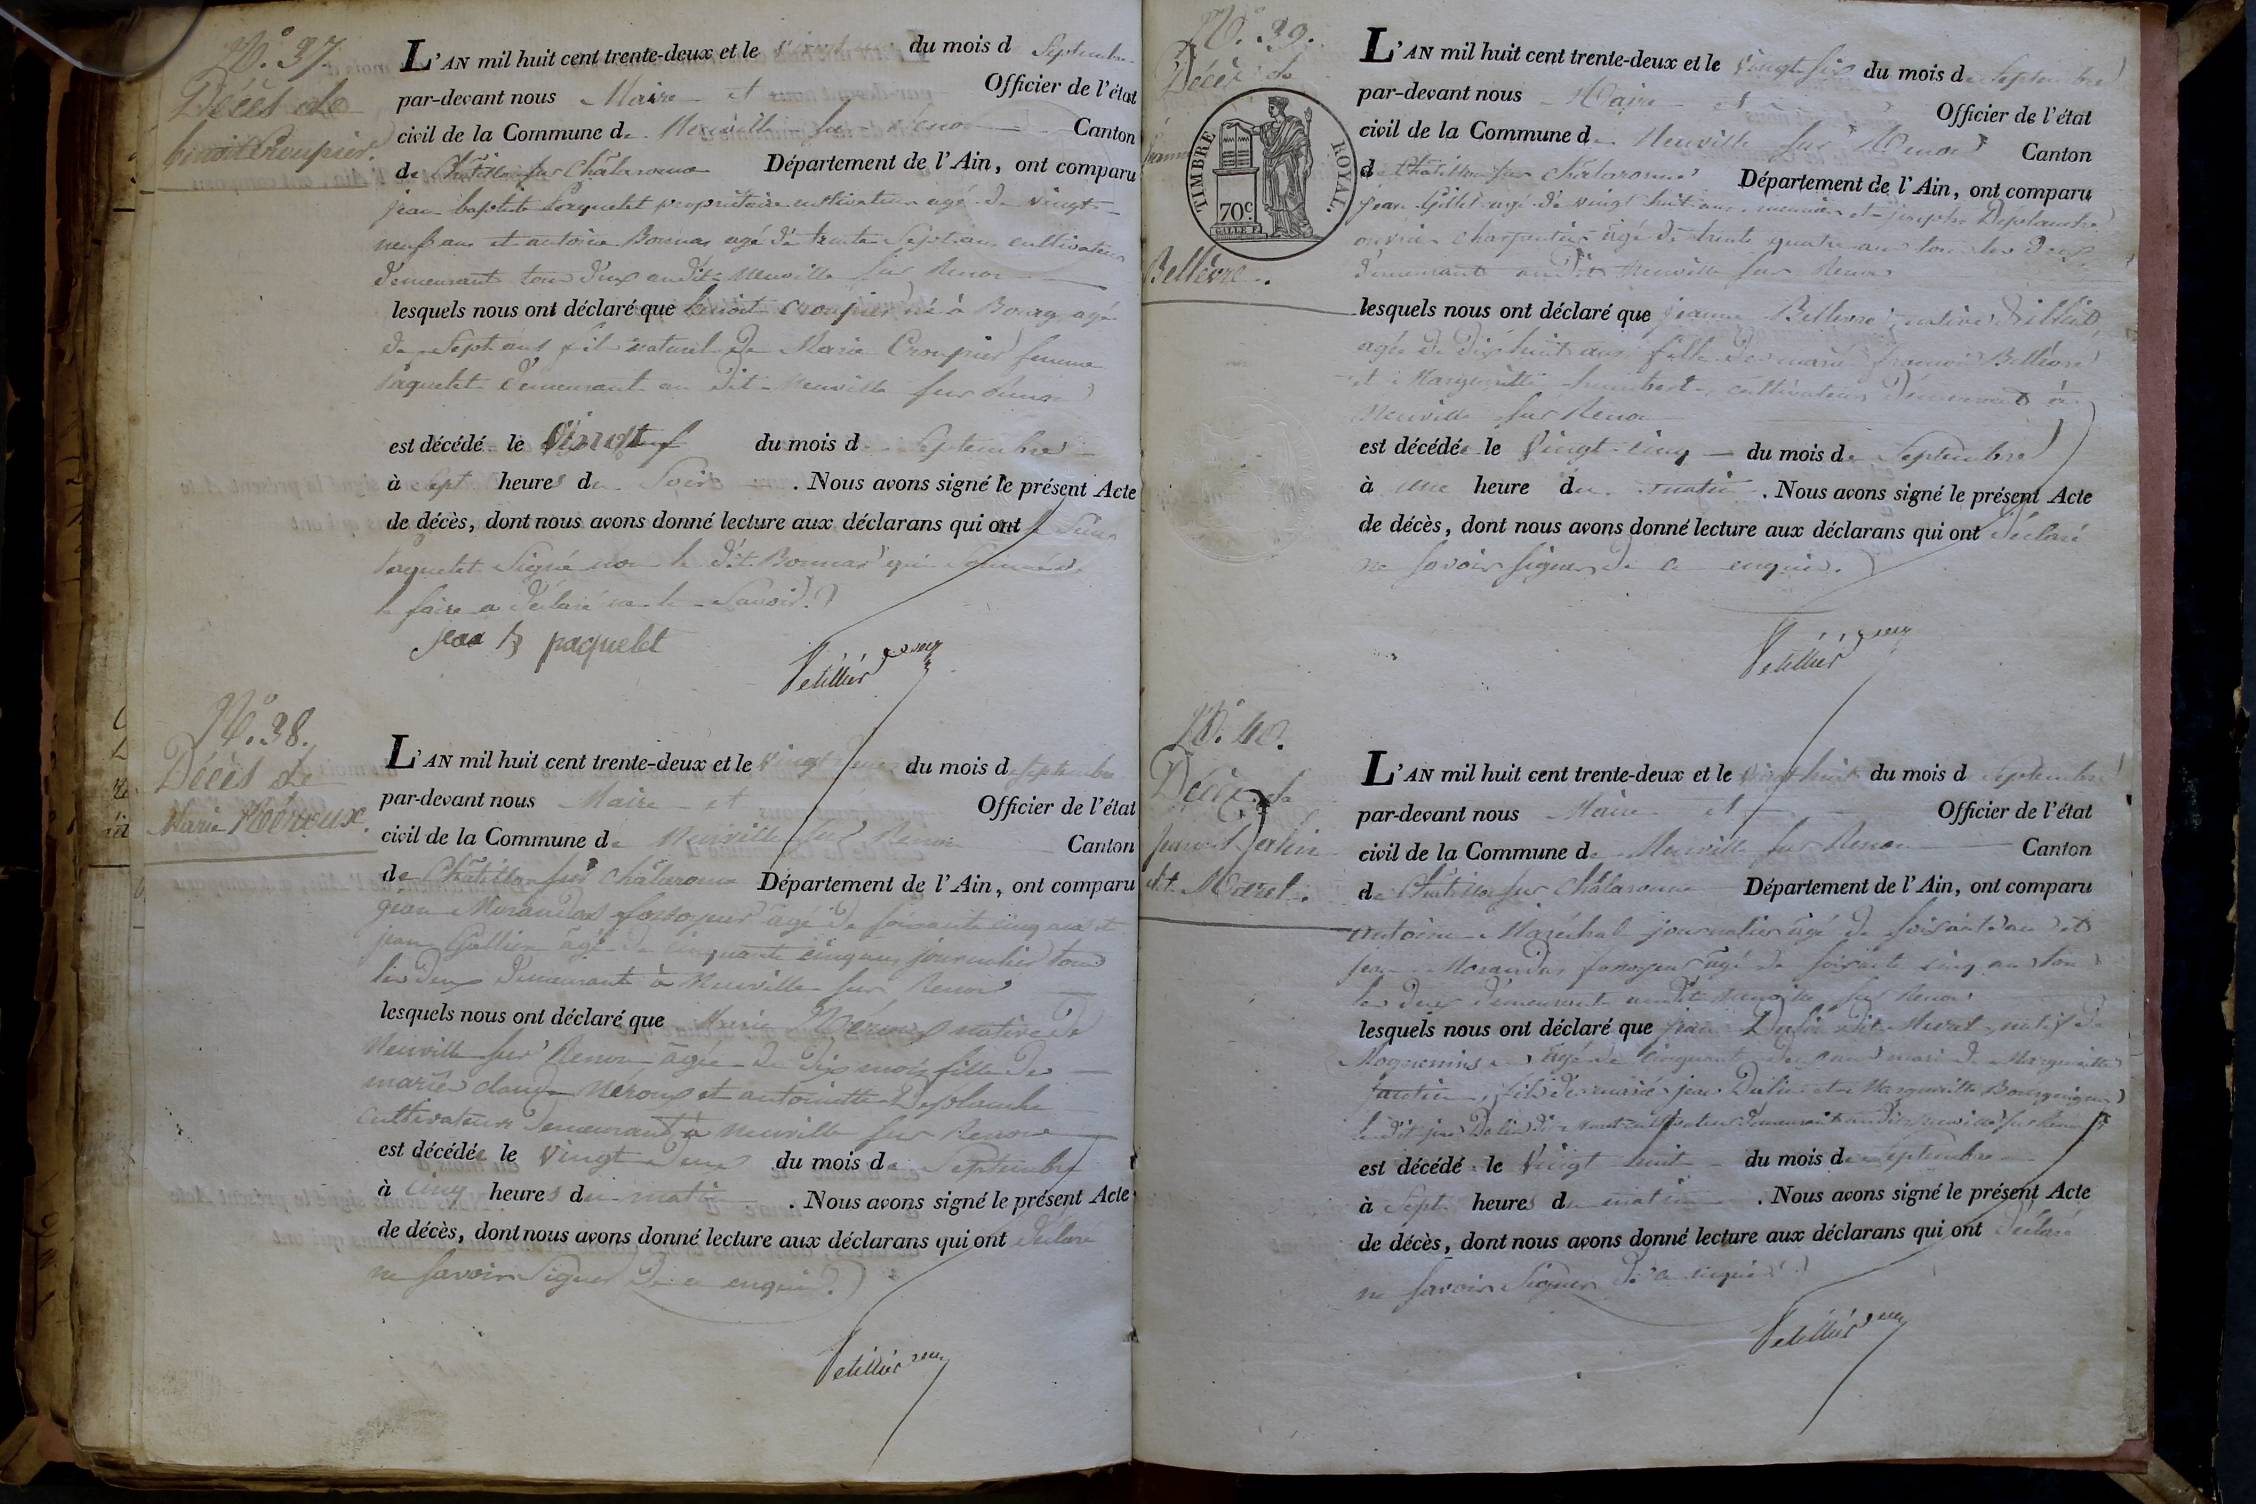 N.° 37.
Décès de
benoit Croupier.
L'AN mil huit cent trente-deux et le vingt du mois d Septembre
par-devant nous Maire et Officier de l'état
civil de la Commune de Neuville sur Renon Canton
de Châtillon sur Châlaronne Département de l'Ain, ont comparu
jean baptiste Paquelet propriétaire cultivateur agé de vingt
neuf ans et antoine Bonnas agé de trente Sept ans cultivateur
demeurant tous deux audit Neuville sur Renon
lesquels nous ont déclaré que benoit Croupier né à Bourg agé
de Sept ans fils naturel de Marie Croupier femme
Paquelet demeurant au dit Neuville sur Renon
est décédé le du mois de Septembre
à Sept heures du Soir. Nous avons signé le présent Acte
de décès, dont nous avons donné lecture aux déclarans qui ont le Sieur
Paquelet Signé non le dit Bonnas qui de
le faire a déclaré ne le Savoir.
jean b paquelet
Petillier
N.° 38.
Décès de
Marie Néroux.
L'AN mil huit cent trente-deux et le vingt deux du mois de Septembre
par-devant nous Maire et Officier de l'état
civil de la Commune de Neuville sur Renon Canton
de Châtillon sur Châlaronne Département de l'Ain, ont comparu
jean Morandas fossoyeur agé de soixante cinq ans et
jean Gallien âgé de cinquante cinq ans journalier tous
les deux demeurant à Neuville sur Renon
lesquels nous ont déclaré que Marie Néroux native de
Neuville sur Renon âgée de dix mois fille de
mariés claude Néroux et antoinette Deplanche
cultivateurs demeurant à Neuville sur Renon
est décédée le vingt deux du mois de Septembre
à cinq heures du matin. Nous avons signé le présent Acte
de décès, dont nous avons donné lecture aux déclarans qui ont déclaré
ne savoir Signer de ce enquis.
Petillier
N.° 39.
Décès de
jeanne
TIMBRE ROYAL.
70c.
Bellèvre.
L'AN mil huit cent trente-deux et le vingt six du mois de Septembre
par-devant nous Maire et Officier de l'état
civil de la Commune de Neuville sur Renon Canton
de Châtillon sur Châlaronne Département de l'Ain, ont comparu
jean Gillet agé de vingt huit ans et joseph Deplanche
ouvrier charpentier âgé de trente quatre ans tous les deux
demeurant audit Neuville sur Renon
lesquels nous ont déclaré que jeanne Bellevre native
agée de dix huit ans fille de mariés françois Bellèvre
et Marguerite humbert cultivateurs demeurant à
Neuville sur Renon
est décédée le vingt-cinq du mois de Septembre
à une heure du matin. Nous avons signé le présent Acte
de décès, dont nous avons donné lecture aux déclarans qui ont déclaré
ne savoir signer de ce enquis.
Petillier
N.° 40.
Décès de
jean Dalin
dit Muret.
L'AN mil huit cent trente-deux et le vingt huit du mois d Septembre
par-devant nous Maire et Officier de l'état
civil de la Commune de Neuville sur Renon Canton
de Châtillon sur Châlaronne Département de l'Ain, ont comparu
antoine Maréchal journalier âgé de soixante ans et
jean Morandas fossoyeur âgé de soixante cinq ans tous
les deux demeurant audit Neuville sur Renon
lesquels nous ont déclaré que jean Dalin dit Muret natif de
agé de cinquante deux ans mari de Marguerite
fils de mariés jean Dalin et Marguerite Bourguignon
ledit jean Dalin dit Muret cultivateur demeurant audit Neuville sur Renon
est décédé le vingt huit du mois de Septembre
à Sept heures du matin. Nous avons signé le présent Acte
de décès, dont nous avons donné lecture aux déclarans qui ont déclaré
ne savoir Signer de ce enquis.
Petillier